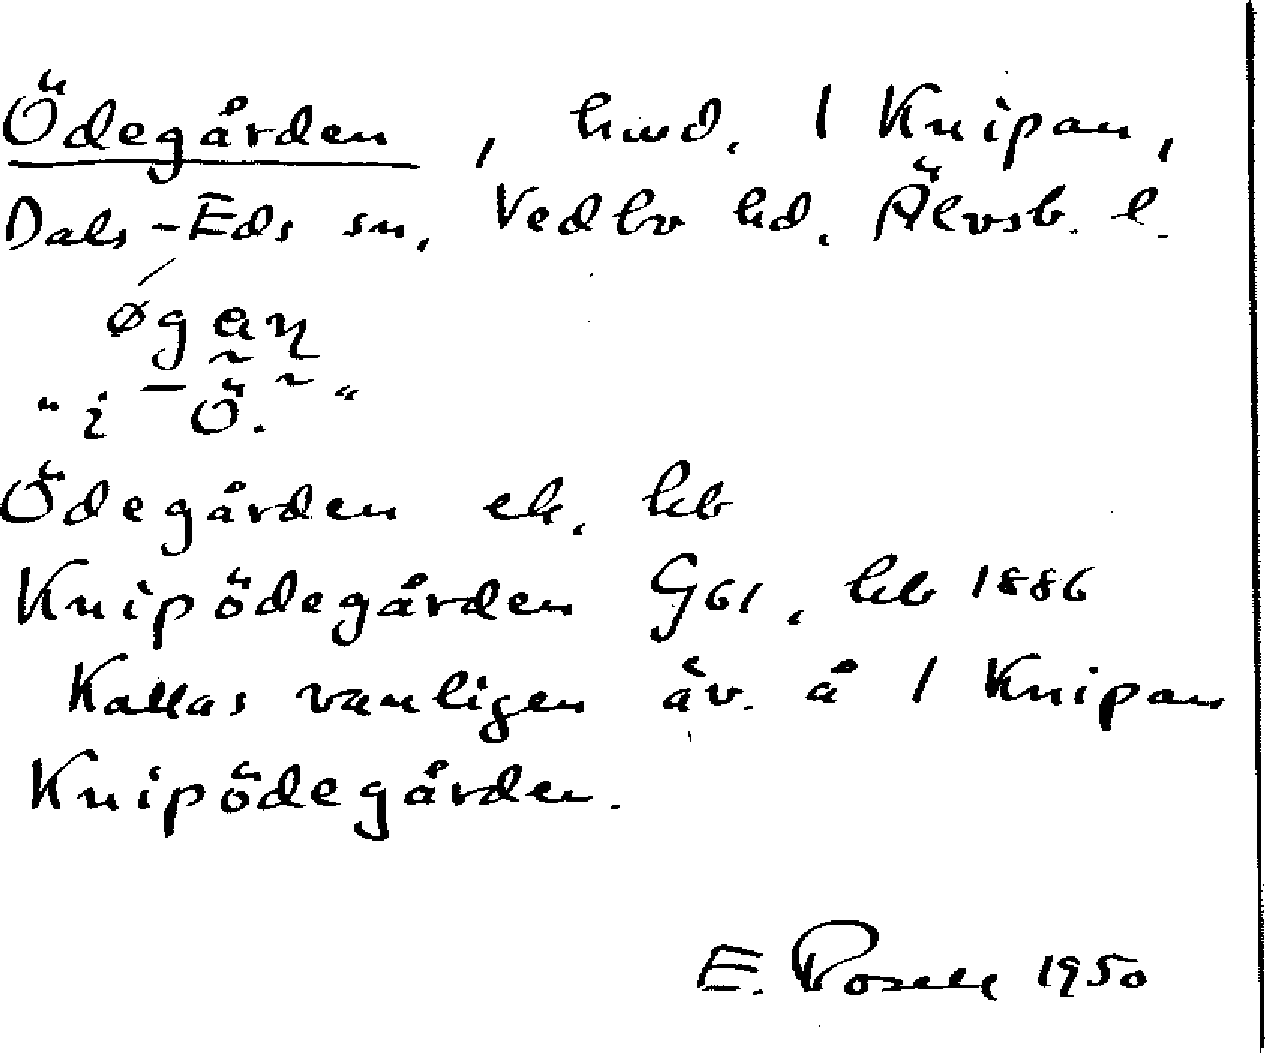 Ödegården, hmd. 1 Knipan,
Dals-Eds sn, Vedbo hd. Älvsb. l.
øgaɳ
"i Ö."
Ödegården ek. kb
Knipödegården G61, kb 1886
Kallas vanligen äv. å 1 Knipan
Knipödegården.
E. 1950